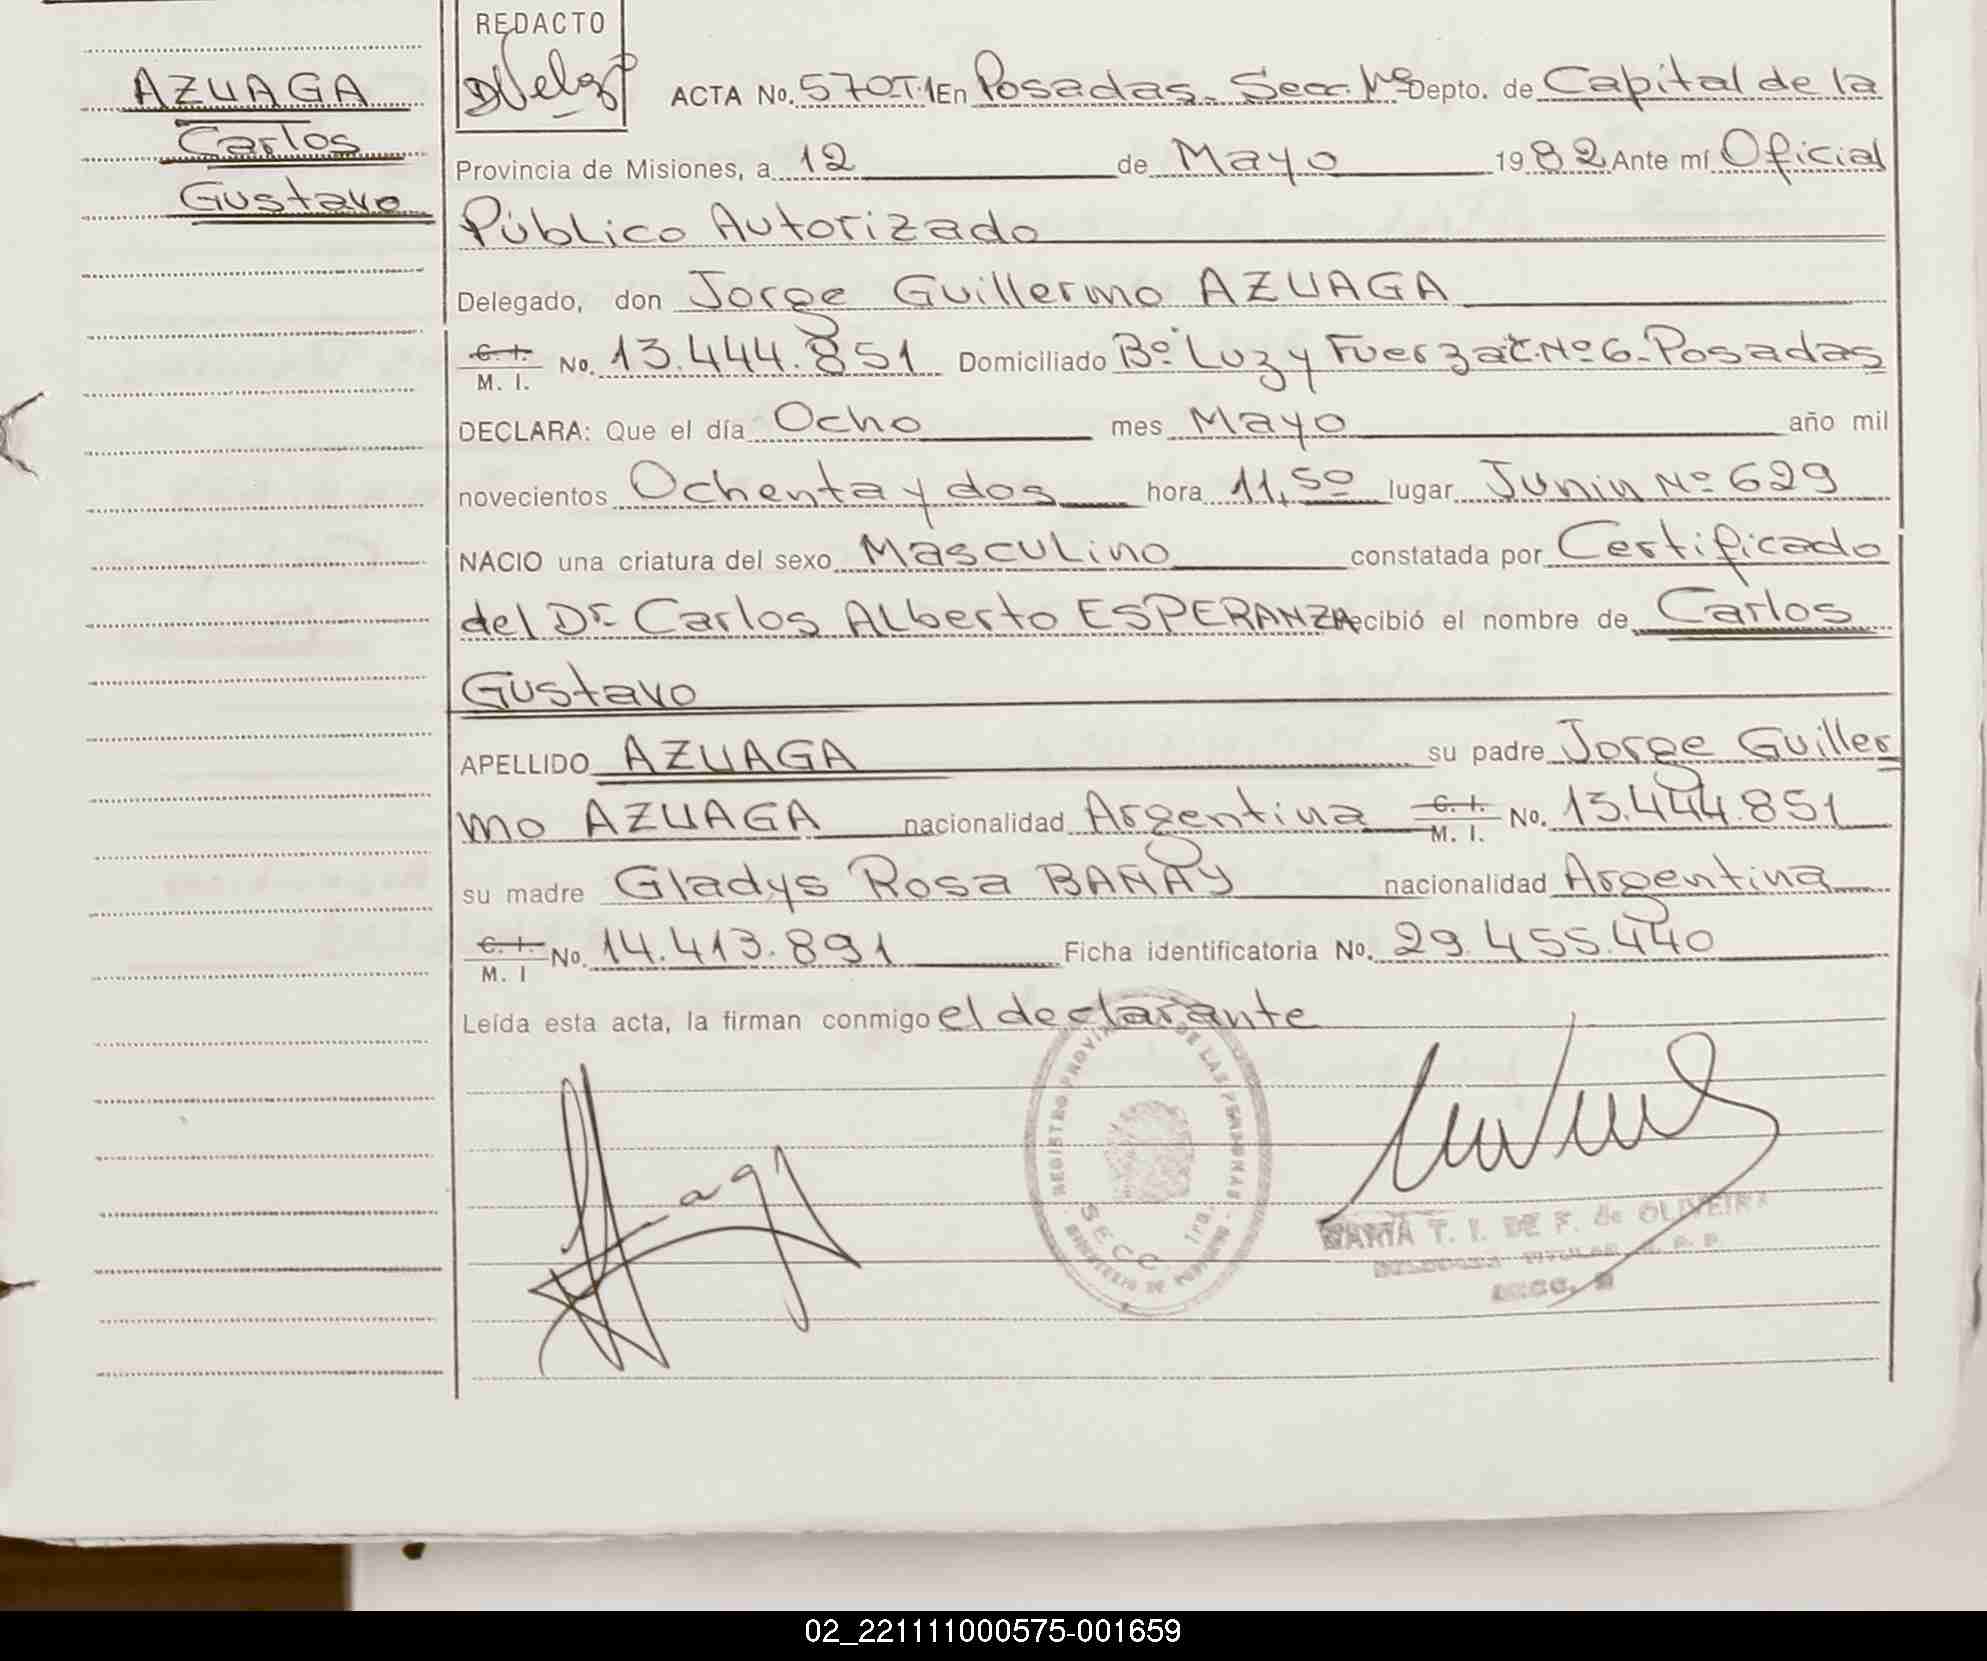 REDACTO
AZUAGA
Carlos
Gustavo
ACTA No. 570T.1 En Posadas. Secc. 1ª Depto. de Capital de la
Provincia de Misiones, a 12 de Mayo 1982 Ante mí Oficial
Público Autorizado
Delegado, don Jorge Guillermo AZUAGA
C. I. M. I. No. 13.444.851 Domiciliado Bº Luz y Fuerza C. Nº 6. Posadas
DECLARA: Que el día Ocho mes Mayo año mil
novecientos Ochenta y dos hora 11,50 lugar Junin Nº 629
NACIO una criatura del sexo Masculino constatada por Certificado
del Dr. Carlos Alberto ESPERANZA recibió el nombre de Carlos
Gustavo
APELLIDO AZUAGA su padre Jorge Guiller
mo AZUAGA nacionalidad Argentina C. I. M. I. No. 13.444.851
su madre Gladys Rosa BAÑAY nacionalidad Argentina
C. I. M. I No. 14.413.891 Ficha identificatoria No. 29.455.440
Leída esta acta, la firman conmigo el declarante
REGISTRO PROVINCIAL DE LAS PERSONAS
SECC. 1ra.
MARTA T. I. DE F. de OLIVEIRA
02_221111000575-001659